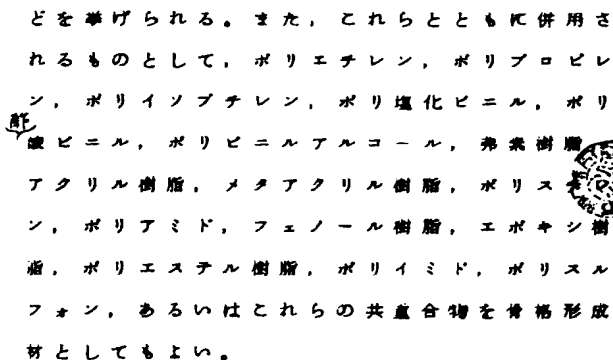 どを挙げられる。また，これらとともに併用さ
れるものとして，ポリエチレン，ポリプロピレ
ン，ポリイソブチレン，ポリ塩化ビニル，ポリ
酢
酸ビニル，ポリビニルアルコール，弗素樹脂
アクリル樹脂，メタアクリル樹脂，ポリス
ン，ポリアミド，フェノール樹脂，エポキシ樹
脂，ポリエステル樹脂，ポリイミド，ポリスル
フォン，あるいはこれらの共重合物を骨格形成
材としてもよい。